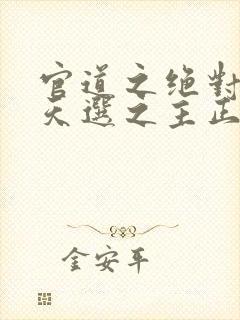 官道之绝對
天選之主正
金安平